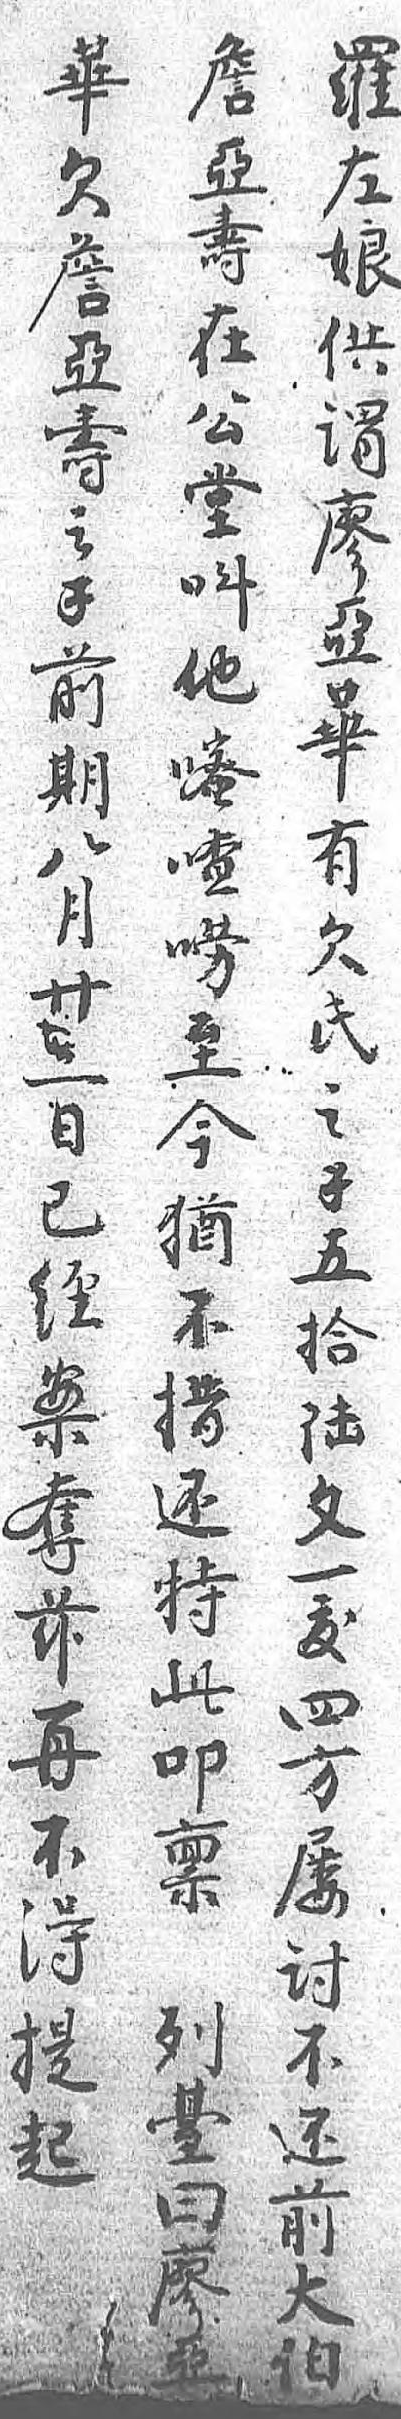 羅左娘供謂廖亞嗶有欠氏之艮五拾陆文一友四方屢討不还前大伯
詹亞壽在公堂叫他嗟喳嘮至今猶不措还特此叩禀　列臺曰廖亞
華欠詹亞壽之艮前期八月廿三日已經案奪茲再不得提起